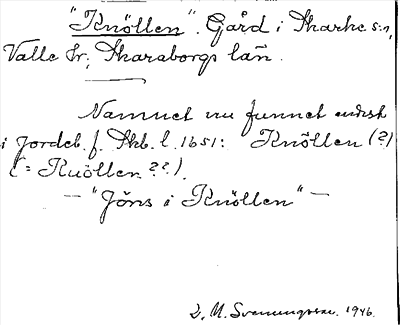 "Knöllen". Gård i Skarke s:n,
Valle hr; Skaraborgs län.
Namnet nu funnet endast
i Jordeb. f. Skb. l. 1651: Knöllen (?)
(= Kuöllen ??).
— "Jöns i Knöllen" —
L. M. Svenungsson. 1946.